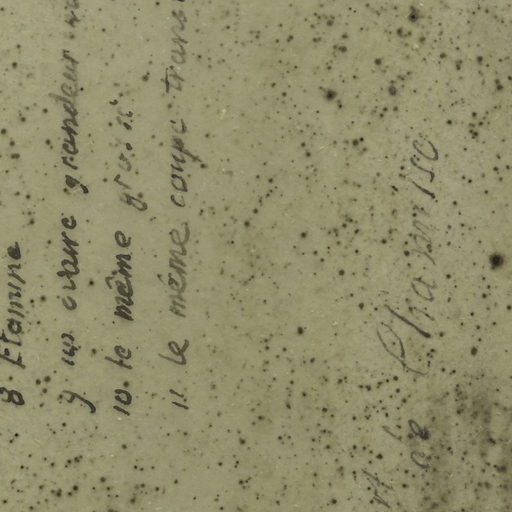 8 Etamine
9 un ovaire grandeur
10 le même grossi
11 le même coupe trans
de Chamisso